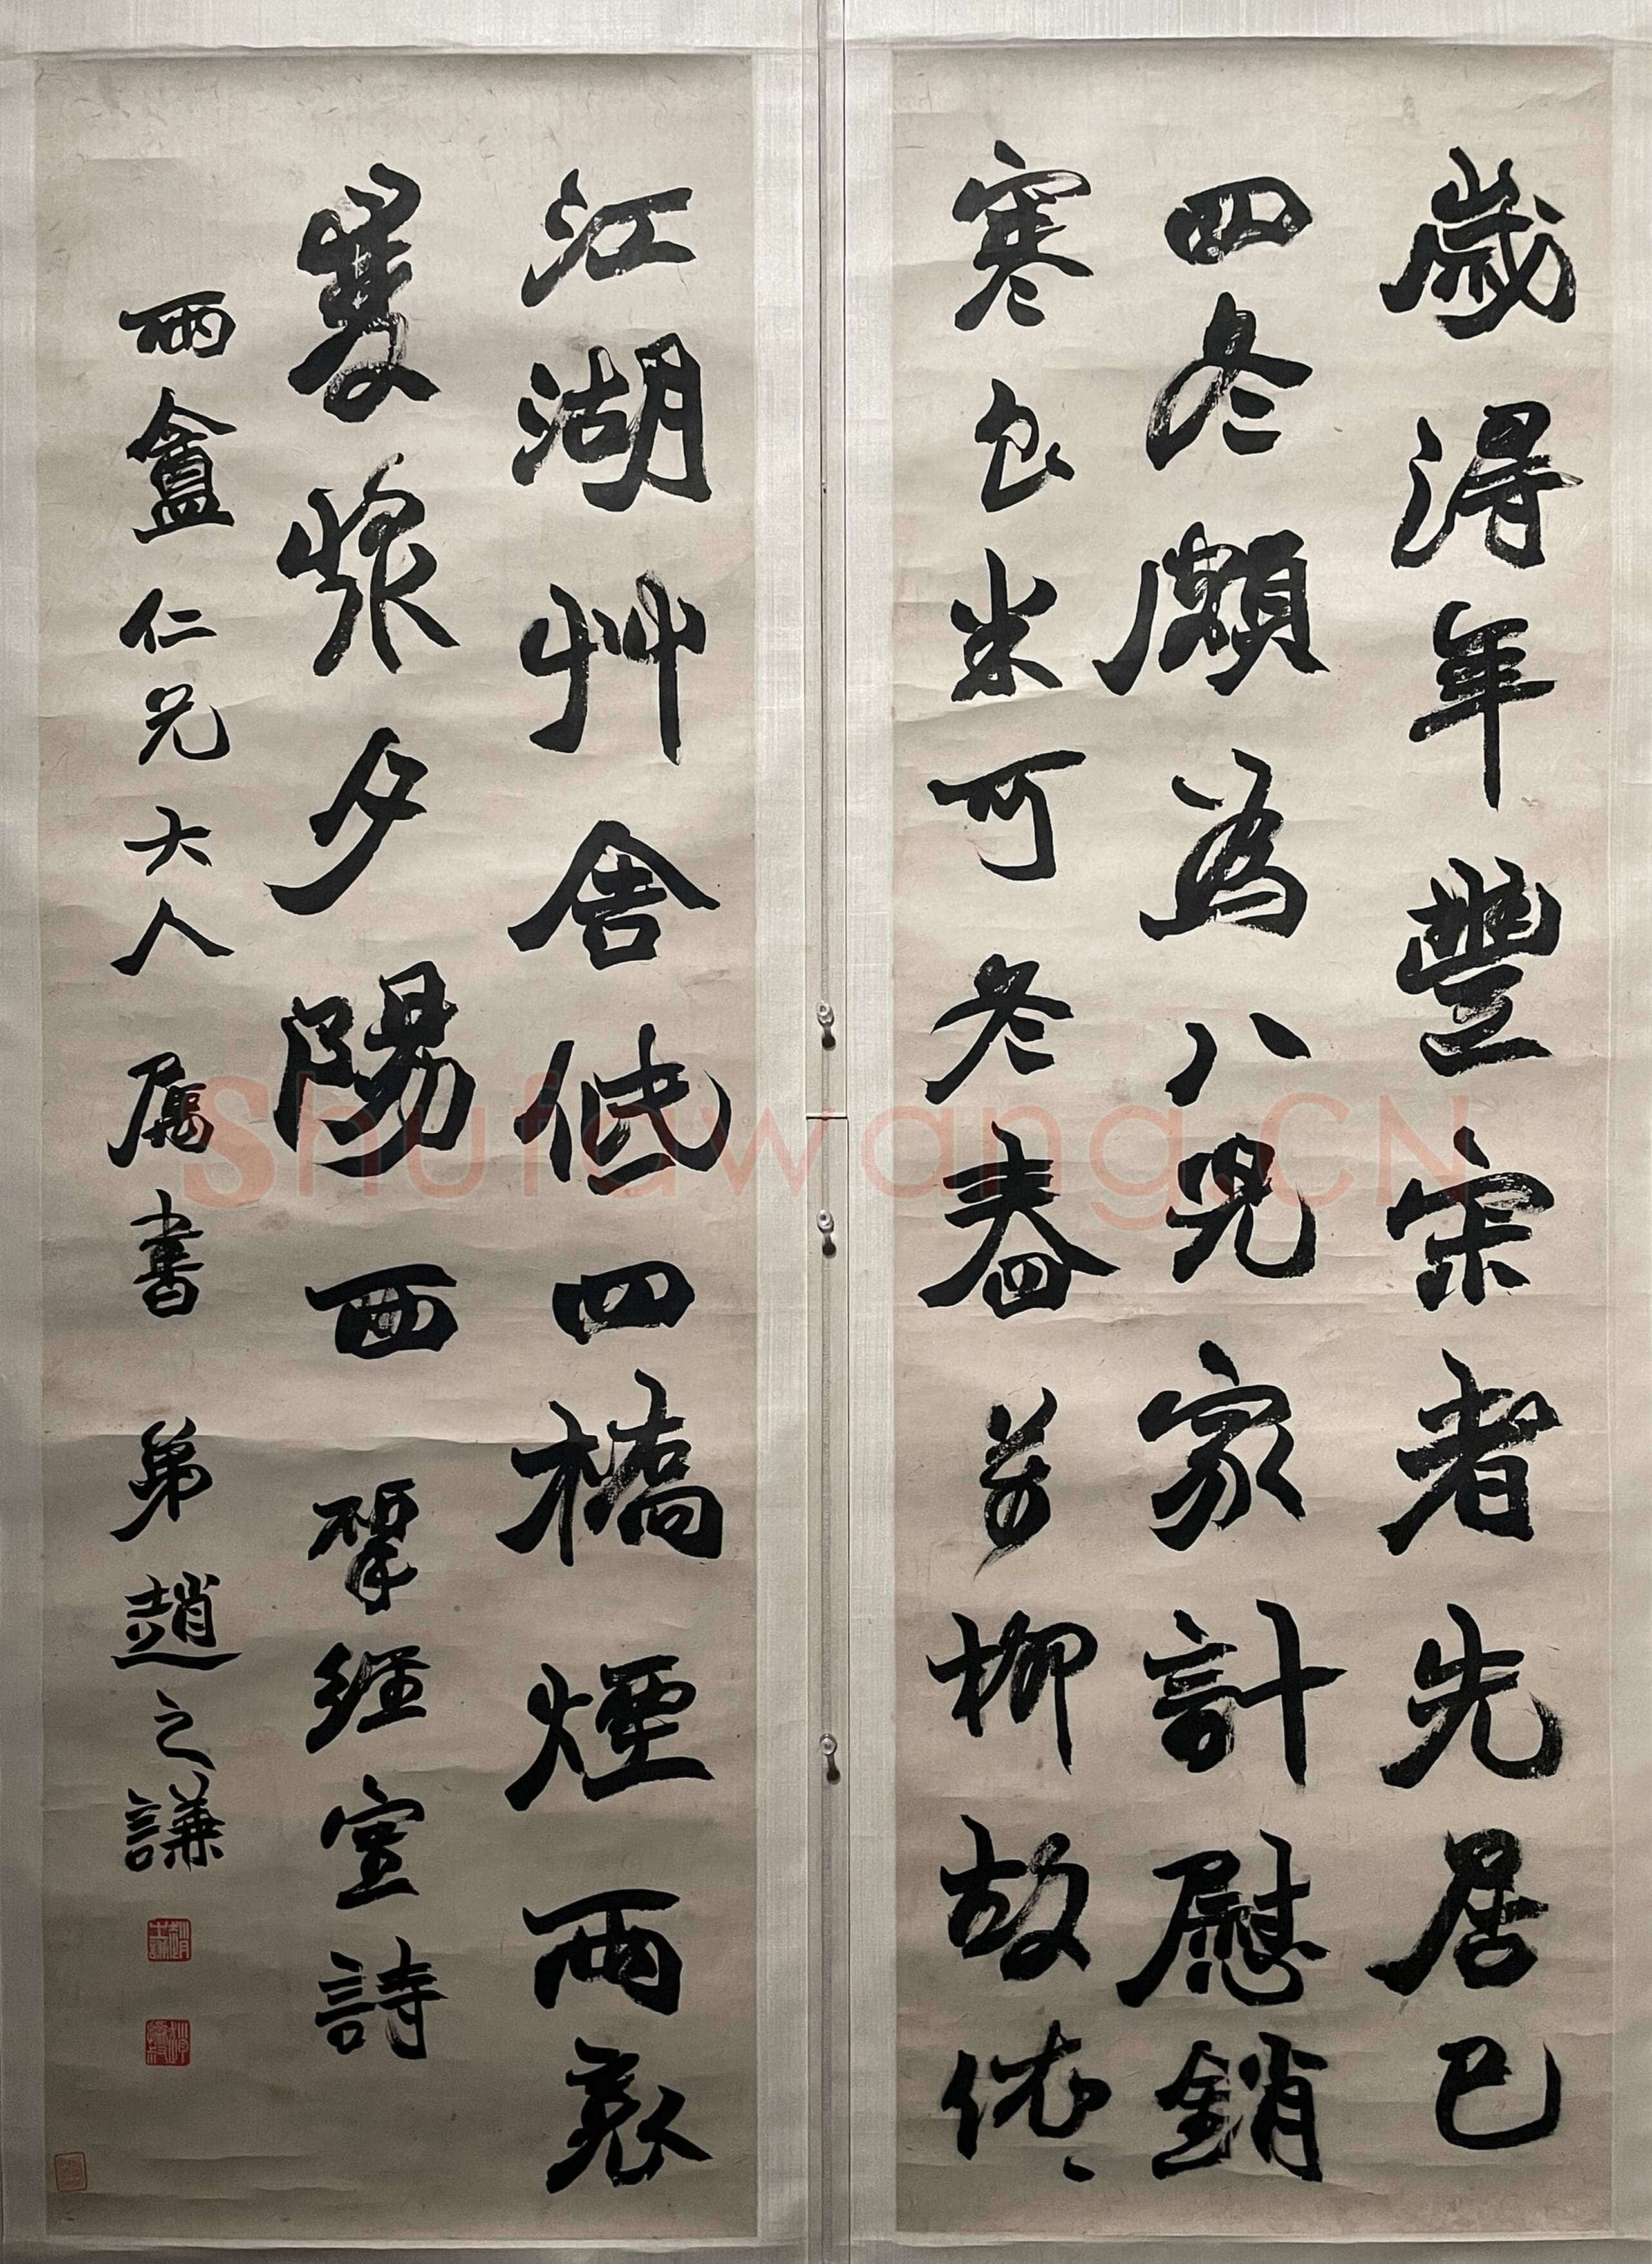 歲得年豐宗者先居已
四冬頗為八兒家計慰銷
寒良米可冬舂萬柳故依々
江湖艸舍低四橋煙雨裏
雙槳夕陽西 揅經室詩
雨盦仁兄大人屬書 弟趙之謙
Shufawang.CN